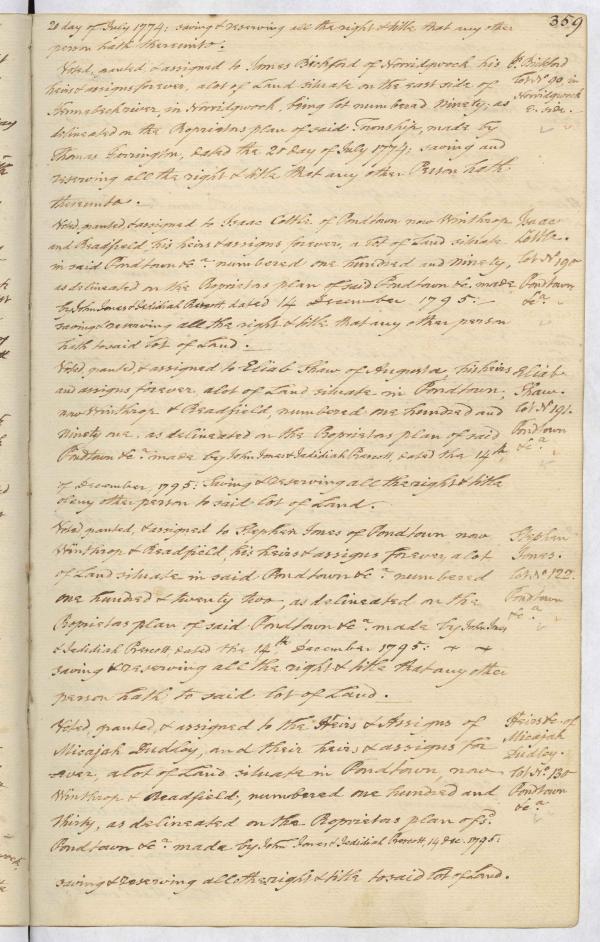 359
20 day of July 1774; saving & reserving all the right & title that any other
person hath thereunto.
Voted, granted, & assigned to James Bickford of Norridgwock his
heirs & assigns forever, a lot of Land situate on the east side of
Kennebeck river, in Norridgwock, being lot numbered Ninety; as
delineated on the Proprietors plan of said Township, made by
Thomas Torrington, dated the 20 day of July 1774; saving and
reserving all the right & title that any other Person hath
thereunto.
Js. Bickford
Lot No. 90 in
Norridgwock
E. side.
Voted, granted, & assigned to Isaac Cottle of Pondtown now Winthrop
and Readfield, his heirs & assigns forever, a lot of Land situate
in said Pondtown &ca. numbered one hundred and Ninety,
as delineated on the Proprietors plan of said Pondtown &c. made
by John Jones & Jedidiah Prescott, dated 14 December 1795:—
saving & reserving all the right & title that any other person
hath to said lot of Land.
Isaac
Cottle.
Lot No. 190
Pondtown
&ca.
Voted, granted, & assigned to Eliab Shaw of Augusta, his heirs
and assigns forever, a lot of Land situate in Pondtown,
now Winthrop & Readfield, numbered one hundred and
Ninety one, as delineated on the Proprietors plan of said
Pondtown &ca. made by John Jones & Jedidiah Prescott, dated the 14th.
of December, 1795: Saving & reserving all the right & title
of any other person to said lot of Land.
Eliab
Shaw.
Lot No. 191.
Pondtown
&ca.
Voted, granted, & assigned to Stephen Jones of Pondtown now
Winthrop & Readfield, his heirs & assigns forever, a lot
of Land situate in said Pondtown &ca. numbered
one hundred & twenty two, as delineated on the
Proprietors plan of said Pondtown &ca. made by John Jones
& Jedidiah Prescott dated the 14th December 1795:
saving & reserving all the right & title that any other
person hath to said lot of Land.
Stephen
Jones.
Lot No. 122.
Pondtown
&ca.
Voted, granted, & assigned to the Heirs & Assigns of
Micajah Dudley, and their heirs & assigns for
ever, a lot of Land situate in Pondtown, now
Winthrop & Readfield, numbered one hundred and
thirty, as delineated on the Proprietors plan of sd.
Pondtown &ca. made by John Jones & Jedidiah Prescott, 14 Dec. 1795:
saving & reserving all other right & title to said lot of Land.
Heirs &c. of
Micajah
Dudley.
Lot No. 130
Pondtown
&ca.